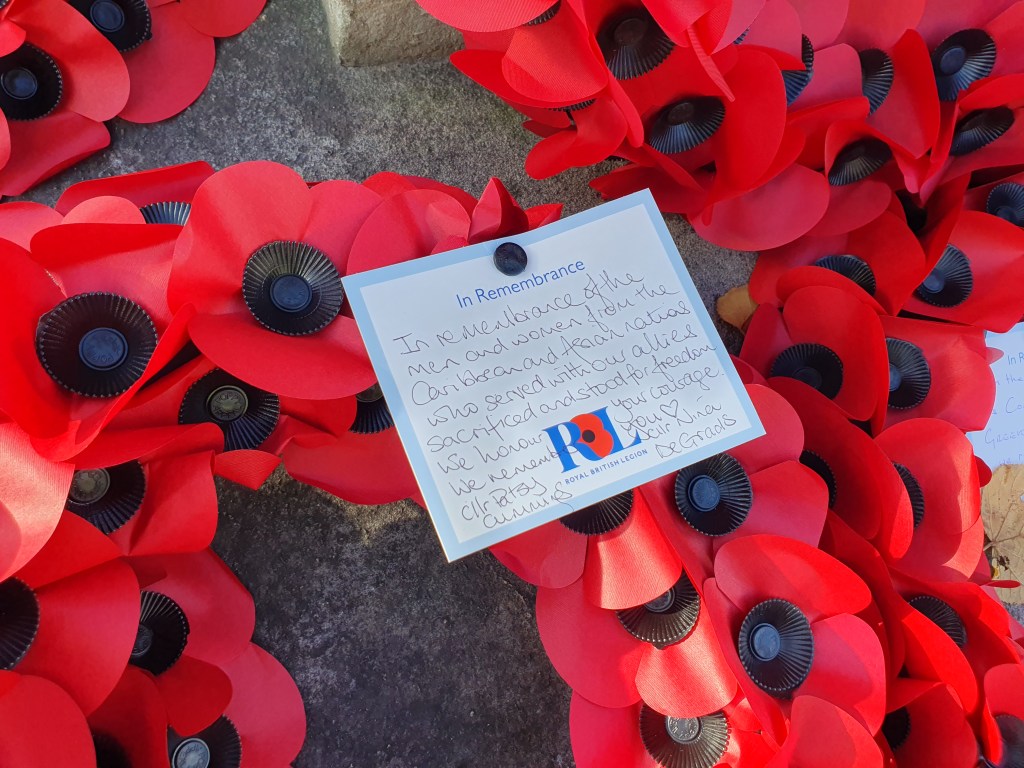 In Remembrance
In remembrance of the
men and women from the
Caribbean and Asian nations
who served with our allies
sacrificed and stood for freedom
We honour your courage.
We remember you ♡
Cllr Patsy Cllr Nina
Cummings De Grads
RBL
ROYAL BRITISH LEGION
In R
the